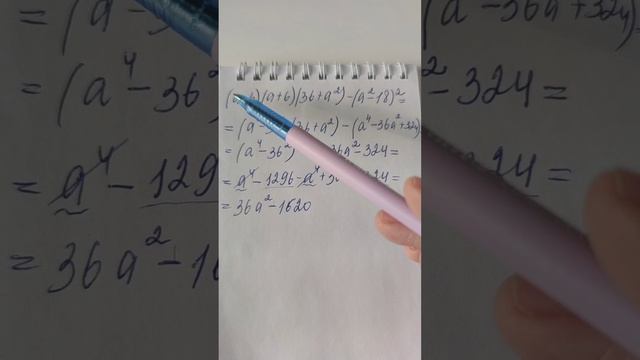 6)(a+6)(36+a²)-(a²-18)²=
=(a 36+a²)-(a⁴-36a²+324)
=(a⁴-36²) 36a²-324=
=a⁴-1296-a⁴+3 24=
=36a²-1620